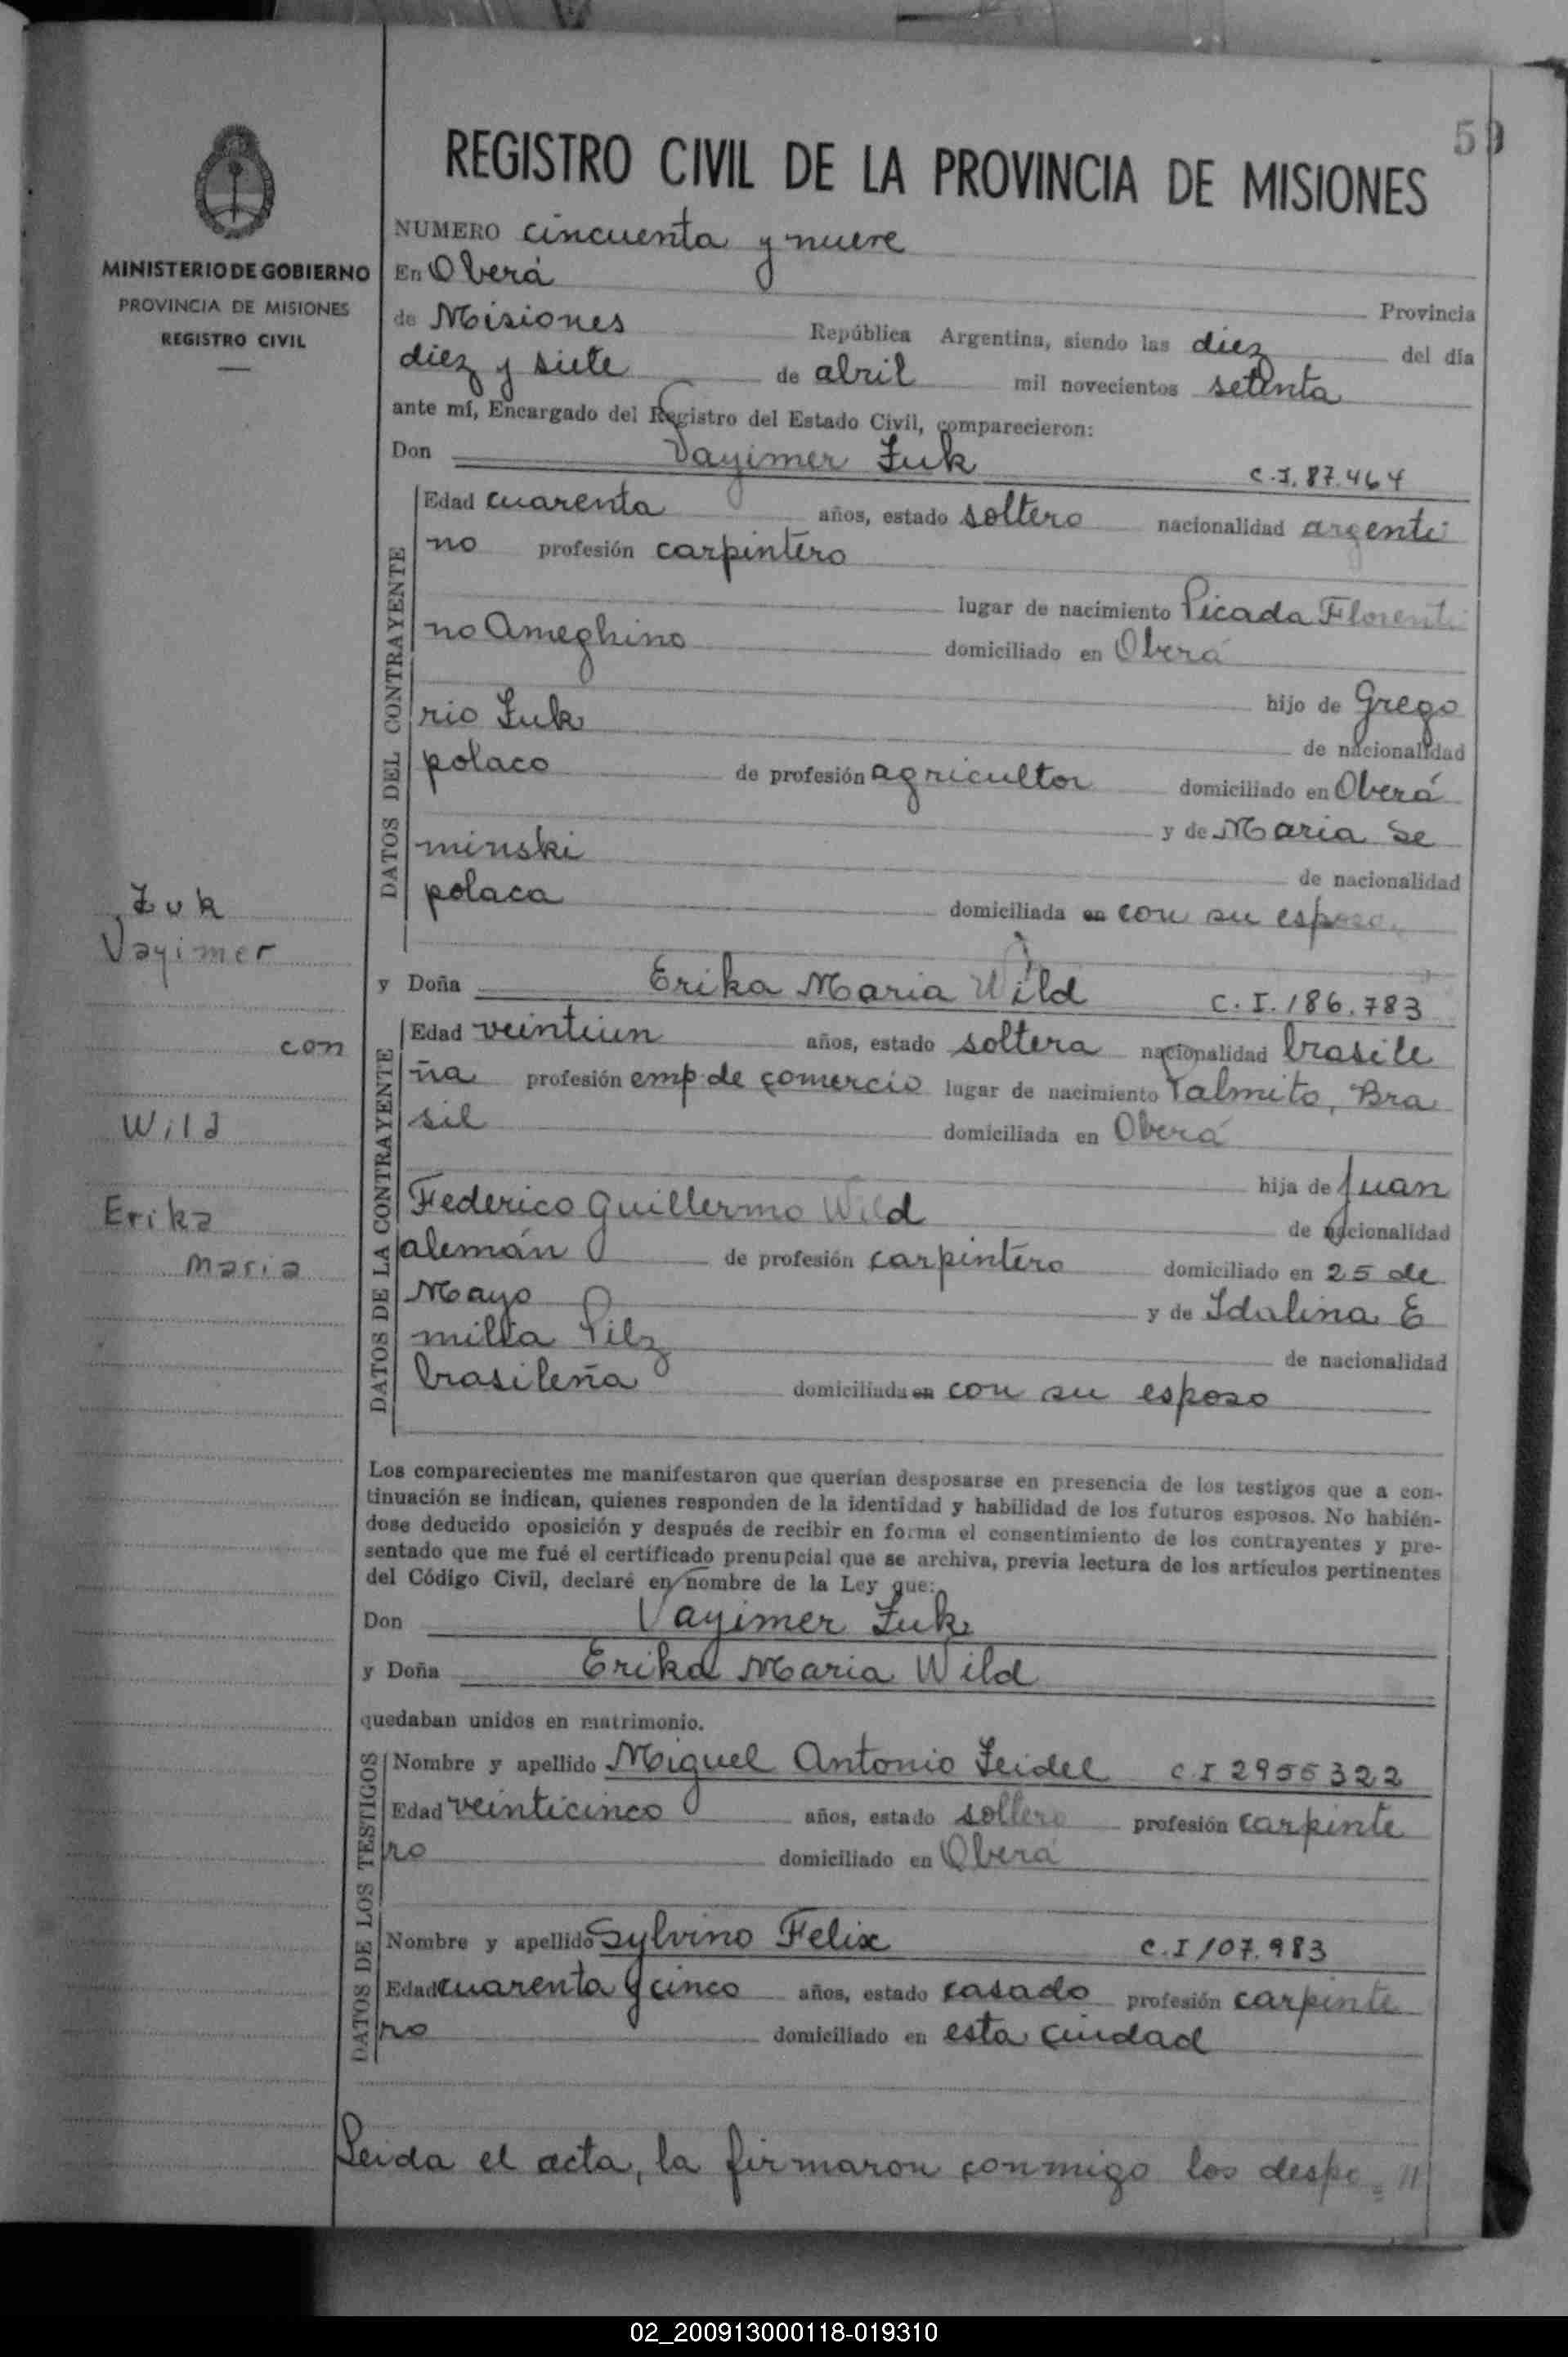 59
REGISTRO CIVIL DE LA PROVINCIA DE MISIONES
MINISTERIO DE GOBIERNO
PROVINCIA DE MISIONES
REGISTRO CIVIL
NUMERO cincuenta y nueve
En Oberá
Provincia
de Misiones República Argentina, siendo las diez del día
diez y siete de abril mil novecientos setenta
ante mí, Encargado del Registro del Estado Civil, comparecieron:
Don Vayimer Zuk C.I. 87.464
DATOS DEL CONTRAYENTE
Edad cuarenta años, estado soltero nacionalidad argenti
no profesión carpintero
lugar de nacimiento Picada Florenti
no Ameghino domiciliado en Oberá
hijo de Grego
rio Zuk
de nacionalidad
polaco de profesión agricultor domiciliado en Oberá
y de Maria Se
minski
de nacionalidad
polaca domiciliada en con su esposo
Zuk
Vayimer
con
Wild
Erika
Maria
y Doña Erika Maria Wild C.I. 186.783
DATOS DE LA CONTRAYENTE
Edad veintiun años, estado soltera nacionalidad brasile
ña profesión emp. de comercio lugar de nacimiento Palmito, Bra
sil domiciliada en Oberá
hija de Juan
Federico Guillermo Wild
de nacionalidad
alemán de profesión carpintero domiciliado en 25 de
Mayo y de Idalina E
milia Pilz
de nacionalidad
brasileña domiciliada en con su esposo
Los comparecientes me manifestaron que querían desposarse en presencia de los testigos que a con-
tinuación se indican, quienes responden de la identidad y habilidad de los futuros esposos. No habién-
dose deducido oposición y después de recibir en forma el consentimiento de los contrayentes y pre-
sentado que me fué el certificado prenupcial que se archiva, previa lectura de los artículos pertinentes
del Código Civil, declaré en nombre de la Ley que:
Don Vayimer Zuk
y Doña Erika Maria Wild
quedaban unidos en matrimonio.
DATOS DE LOS TESTIGOS
Nombre y apellido Miguel Antonio Zeidel C.I 2955322
Edad veinticinco años, estado soltero profesión carpinte
ro domiciliado en Oberá
Nombre y apellido Sylvino Felix C.I 107.983
Edad cuarenta y cinco años, estado casado profesión carpinte
ro domiciliado en esta ciudad
Leida el acta, la firmaron conmigo los despo=//
02_200913000118-019310